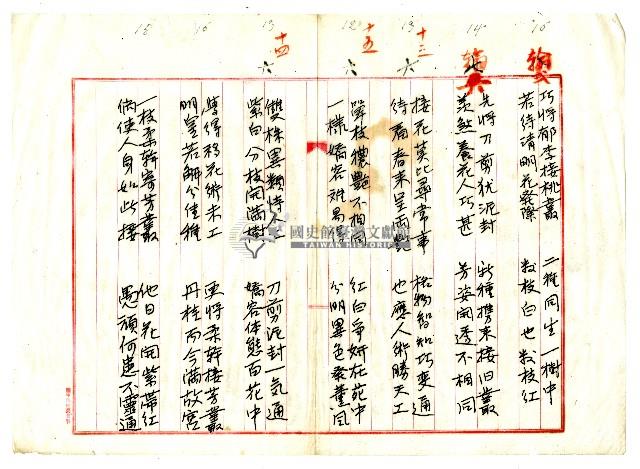 巧將郁李接桃叢 二種同生一樹中
若待清明花發際 數枝白也數枝紅
先將刀剪犹泥封 新種携來接旧叢
羨煞養花人巧甚 芳姿開透不相同
接花莫比尋常事 格物智知巧变通
待看春來呈兩色 也應人術勝天工
雙枝濃艷不相同 紅白爭妍在苑中
一樣嬌容難 分明異色發薰風
雙株異類恃人工 刀剪泥封一氣通
紫白分枝開滿樹 嬌容体態百花中
專得移花術未工 更將柔幹接芳叢
明 若解分佳種 丹桂而今滿故宮
一枝柔幹寄芳叢 他日花開紫帶紅
倘使人身如此接 愚頑何患不靈通
國史館臺灣文獻館
TAIWAN HISTORICA
十三
十五
十四
六
六
六
15
14
13
12
13
15
15